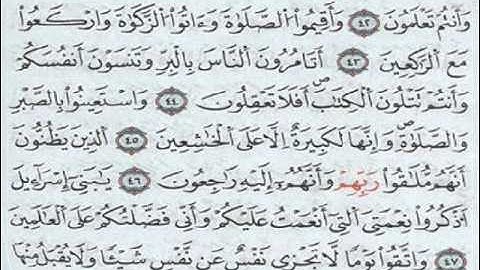 وَأَنتُمْ تَعْلَمُونَ ٤٢ وَأَقِيمُوا۟ ٱلصَّلَوٰةَ وَءَاتُوا۟ ٱلزَّكَوٰةَ وَٱرْكَعُوا۟
مَعَ ٱلرَّٰكِعِينَ ٤٣ أَتَأْمُرُونَ ٱلنَّاسَ بِٱلْبِرِّ وَتَنسَوْنَ أَنفُسَكُمْ
وَأَنتُمْ تَتْلُونَ ٱلْكِتَٰبَ أَفَلَا تَعْقِلُونَ ٤٤ وَٱسْتَعِينُوا۟ بِٱلصَّبْرِ
وَٱلصَّلَوٰةِ وَإِنَّهَا لَكَبِيرَةٌ إِلَّا عَلَى ٱلْخَٰشِعِينَ ٤٥ ٱلَّذِينَ يَظُنُّونَ
أَنَّهُم مُّلَٰقُوا۟ رَبِّهِمْ وَأَنَّهُمْ إِلَيْهِ رَٰجِعُونَ ٤٦ يَٰبَنِىٓ إِسْرَٰٓءِيلَ
ٱذْكُرُوا۟ نِعْمَتِىَ ٱلَّتِىٓ أَنْعَمْتُ عَلَيْكُمْ وَأَنِّى فَضَّلْتُكُمْ عَلَى ٱلْعَٰلَمِينَ
٤٧ وَٱتَّقُوا۟ يَوْمًا لَّا تَجْزِى نَفْسٌ عَن نَّفْسٍ شَيْـًٔا وَلَا يُقْبَلُ مِنْهَا